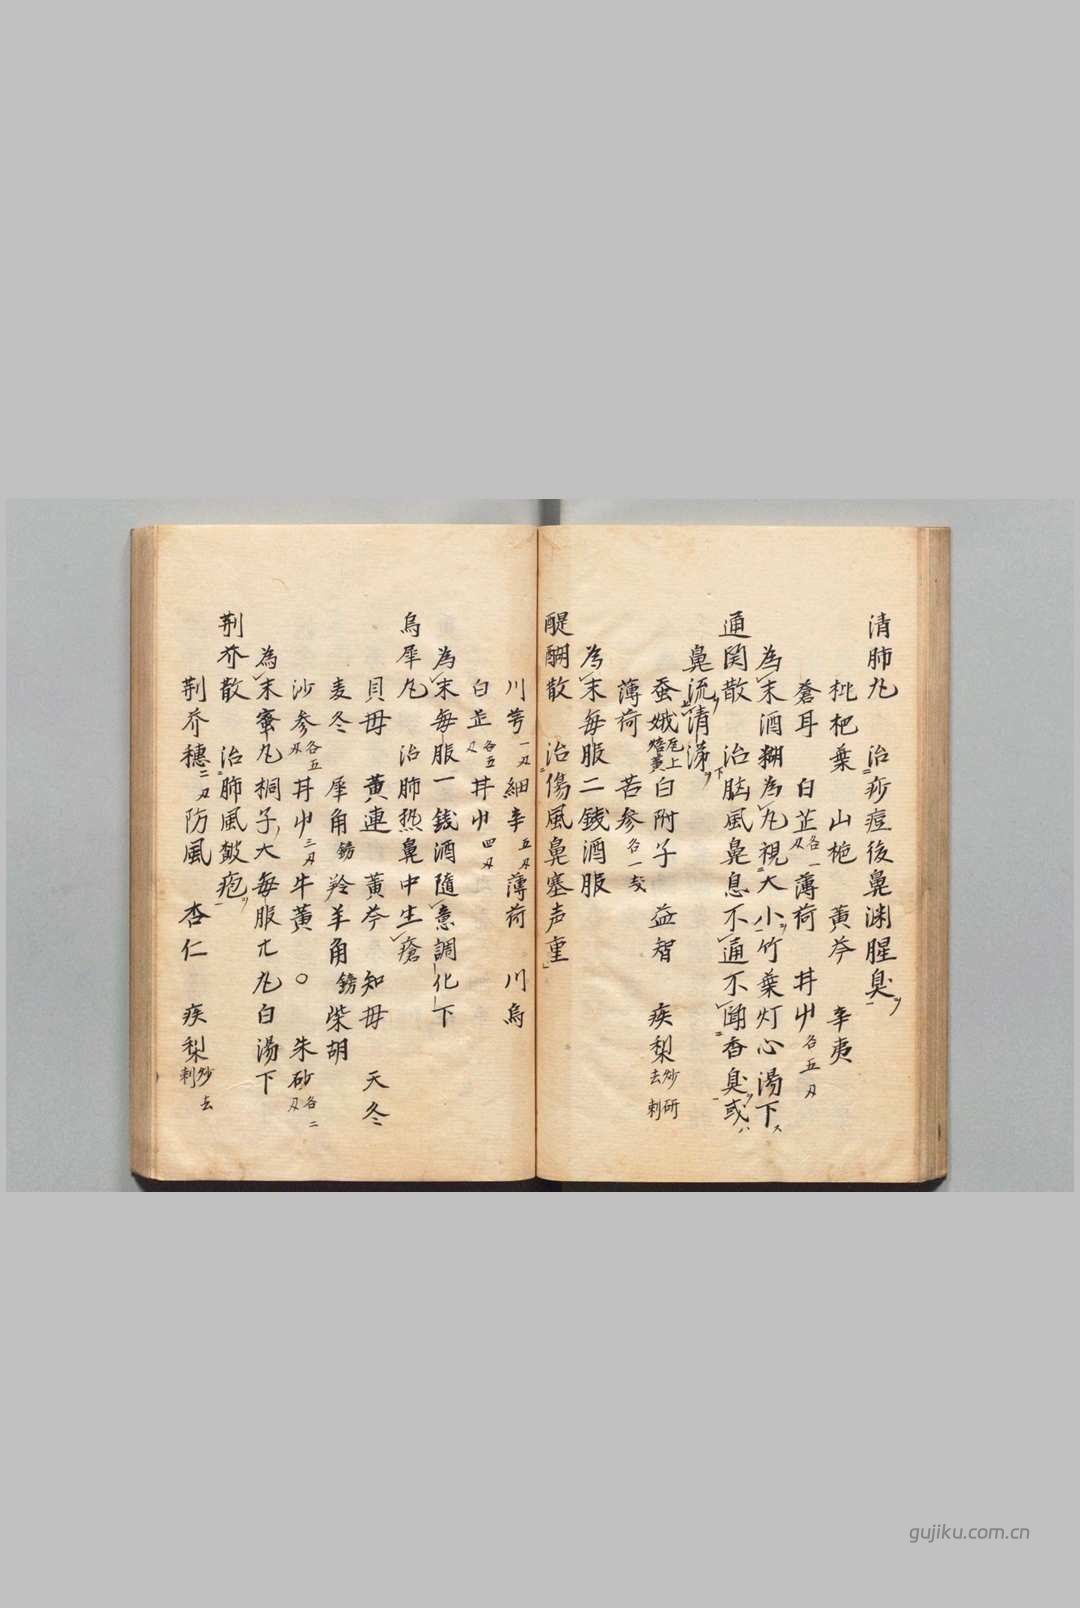 清肺丸　治痧痘後鼻渊腥臭
枇杷葉　山栀　黄芩　辛夷
蒼耳　白芷各一刄薄荷　井屮各五刄
為末酒糊為丸視大小竹葉灯心湯下
通関散　治脳風鼻息不通不聞香臭或
鼻流清涕
蚕娥瓦上焙黄白附子　益智　疾梨炒研去刺
薄荷　苦参各一戔
為末每服二銭酒服
醍醐散　治傷風鼻塞声重
川芎一刄細辛五刄薄荷　川烏
白芷各五刄井屮四刄
為末每服一銭酒隨意調化下
烏犀丸　治肺热鼻中生瘡
貝母　黄連　黄芩　知母　天冬
麦冬　犀角鎊羚羊角鎊柴胡
沙参各五刄井屮三刄牛黄　○　朱砂各二刄
為末蜜丸桐子大每服尢丸白湯下
荆芥散　治肺風皶疱
荆芥穗二刄防風　杏仁　疾梨炒去刺
gujiku.com.cn